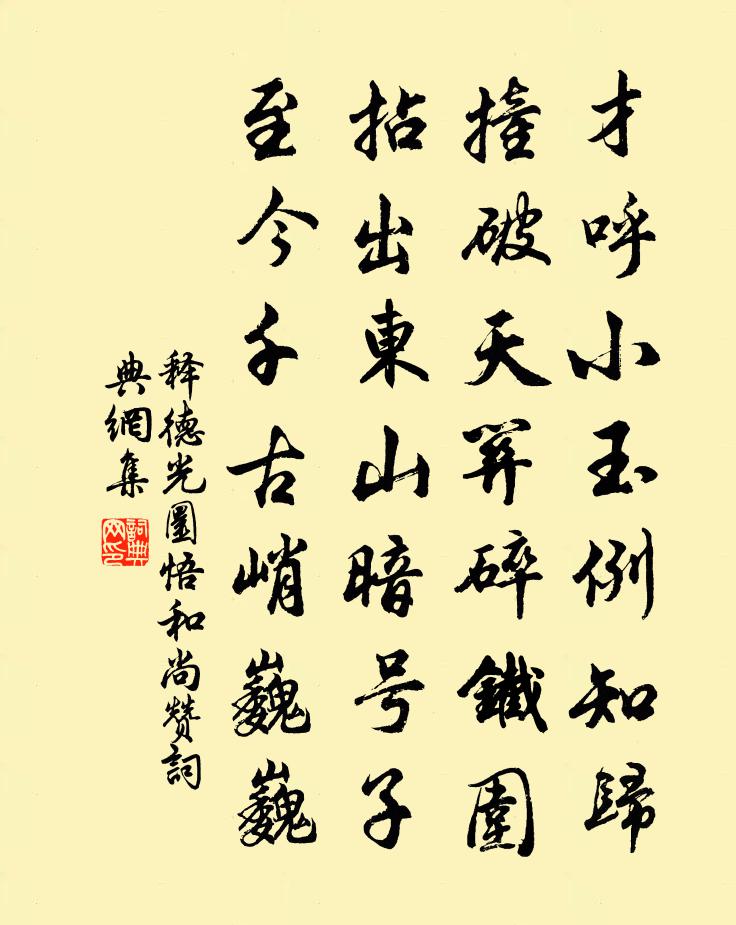 才呼小玉例知歸
撞破天關碎鐵圍
拈出東山暗号子
至今千古峭巍巍
释德光圜悟和尚赞詞
典網集
詞典
网印